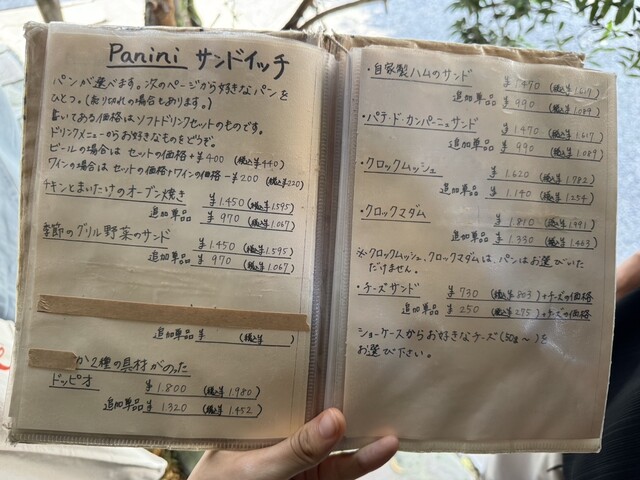 Panini サンドイッチ
パンが選べます。次のページから好きなパンを
ひとつ。(売り切れの場合もあります。)
いてある価格はソフトドリンクセットのものです。
ドリンクメニューからお好きなものをどうぞ。
ビールの場合は セットの価格+¥400 (税込¥440)
ワインの場合は セットの価格+ワインの価格-¥200 (税込¥220)
チキンとまいたけのオーブン焼き ¥1.450 (税込¥1.595)
追加単品 ¥970 (税込¥1.067)
季節のグリル野菜のサンド ¥1.450 (税込¥1.595)
追加単品 ¥970 (税込¥1.067)
追加単品 ¥ (税込¥ )
か2種の具材がのった
ドッピオ ¥1.800 (税込¥1.980)
追加単品 ¥1.320 (税込¥1.452)
・自家製ハムのサンド ¥1.470 (税込¥1.617)
追加単品 ¥990 (税込¥1.089)
・パテ・ド・カンパーニュサンド ¥1.470 (税込¥1.617)
追加単品 ¥990 (税込¥1.089)
・クロックムッシュ ¥1.620 (税込¥1.782)
追加単品 ¥1.140 (税込¥1254)
・クロックマダム ¥1.810 (税込¥1991)
追加単品 ¥1.330 (税込¥1.463)
※クロックムッシュ、クロックマダムは、パンはお選びいた
だけません。
・チーズサンド ¥730 (税込¥803)+チーズの価格
追加単品 ¥250 (税込¥275)+チーズの価格
ショーケースからお好きなチーズ(50g〜)を
お選び下さい。